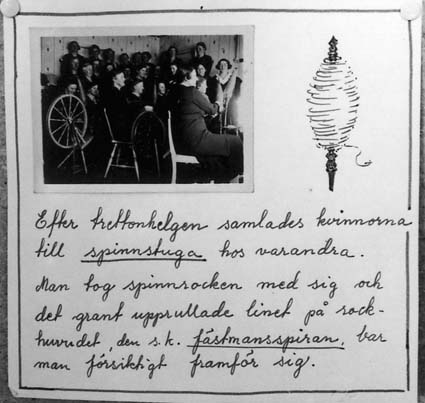 Efter trettonhelgen samlades kvinnorna
till spinnstuga hos varandra.
Man tog spinnrocken med sig och
det grant upprullade linet på rock-
huvudet, den s.k. fästmansspiran, bar
man försiktigt framför sig.